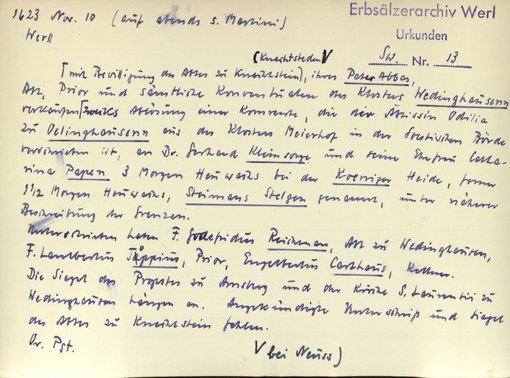 1623 Nov. 10 (auf abends s. Martini)
Werl
Erbsälzerarchiv Werl
Urkunden
Sw. Nr. 13
(Knechtsteden V
[mit Bewilligung des Abtes zu Knechtstein], ihres Pater Abbas,
Abt, Prior und sämtliche Konventualen des Klosters Wedinghausenn
verkaufen zwecks Ablösung einer Kornrente, die der Äbtissin Odilia
zu Oelinghausenn aus des Klosters Meierhof in der Soestischen Börde
verschrieben ist, an Dr. Gerhard Kleinsorge und seine Ehefrau Catha-
rina Papen 3 Morgen Heuwachs bei der Heide, ferner
1 1/2 Morgen Heuwachs, Steimans Stelgen genannt, unter näherer
Beschreibung der Grenzen.
Unterschrieben haben F. Godefridus Reichman, Abt zu Wedinghausen,
F. Lambertus Prior, Engelbertus Carthaus, Kellner.
Die Siegel des Propstes zu Arnsberg und der Kirche S. Laurentii zu
Wedinghausen hängen an. Angekündigte Unterschrift und Siegel
des Abtes zu Knechtstein fehlen.
Or. Pgt.
V bei Neuss)